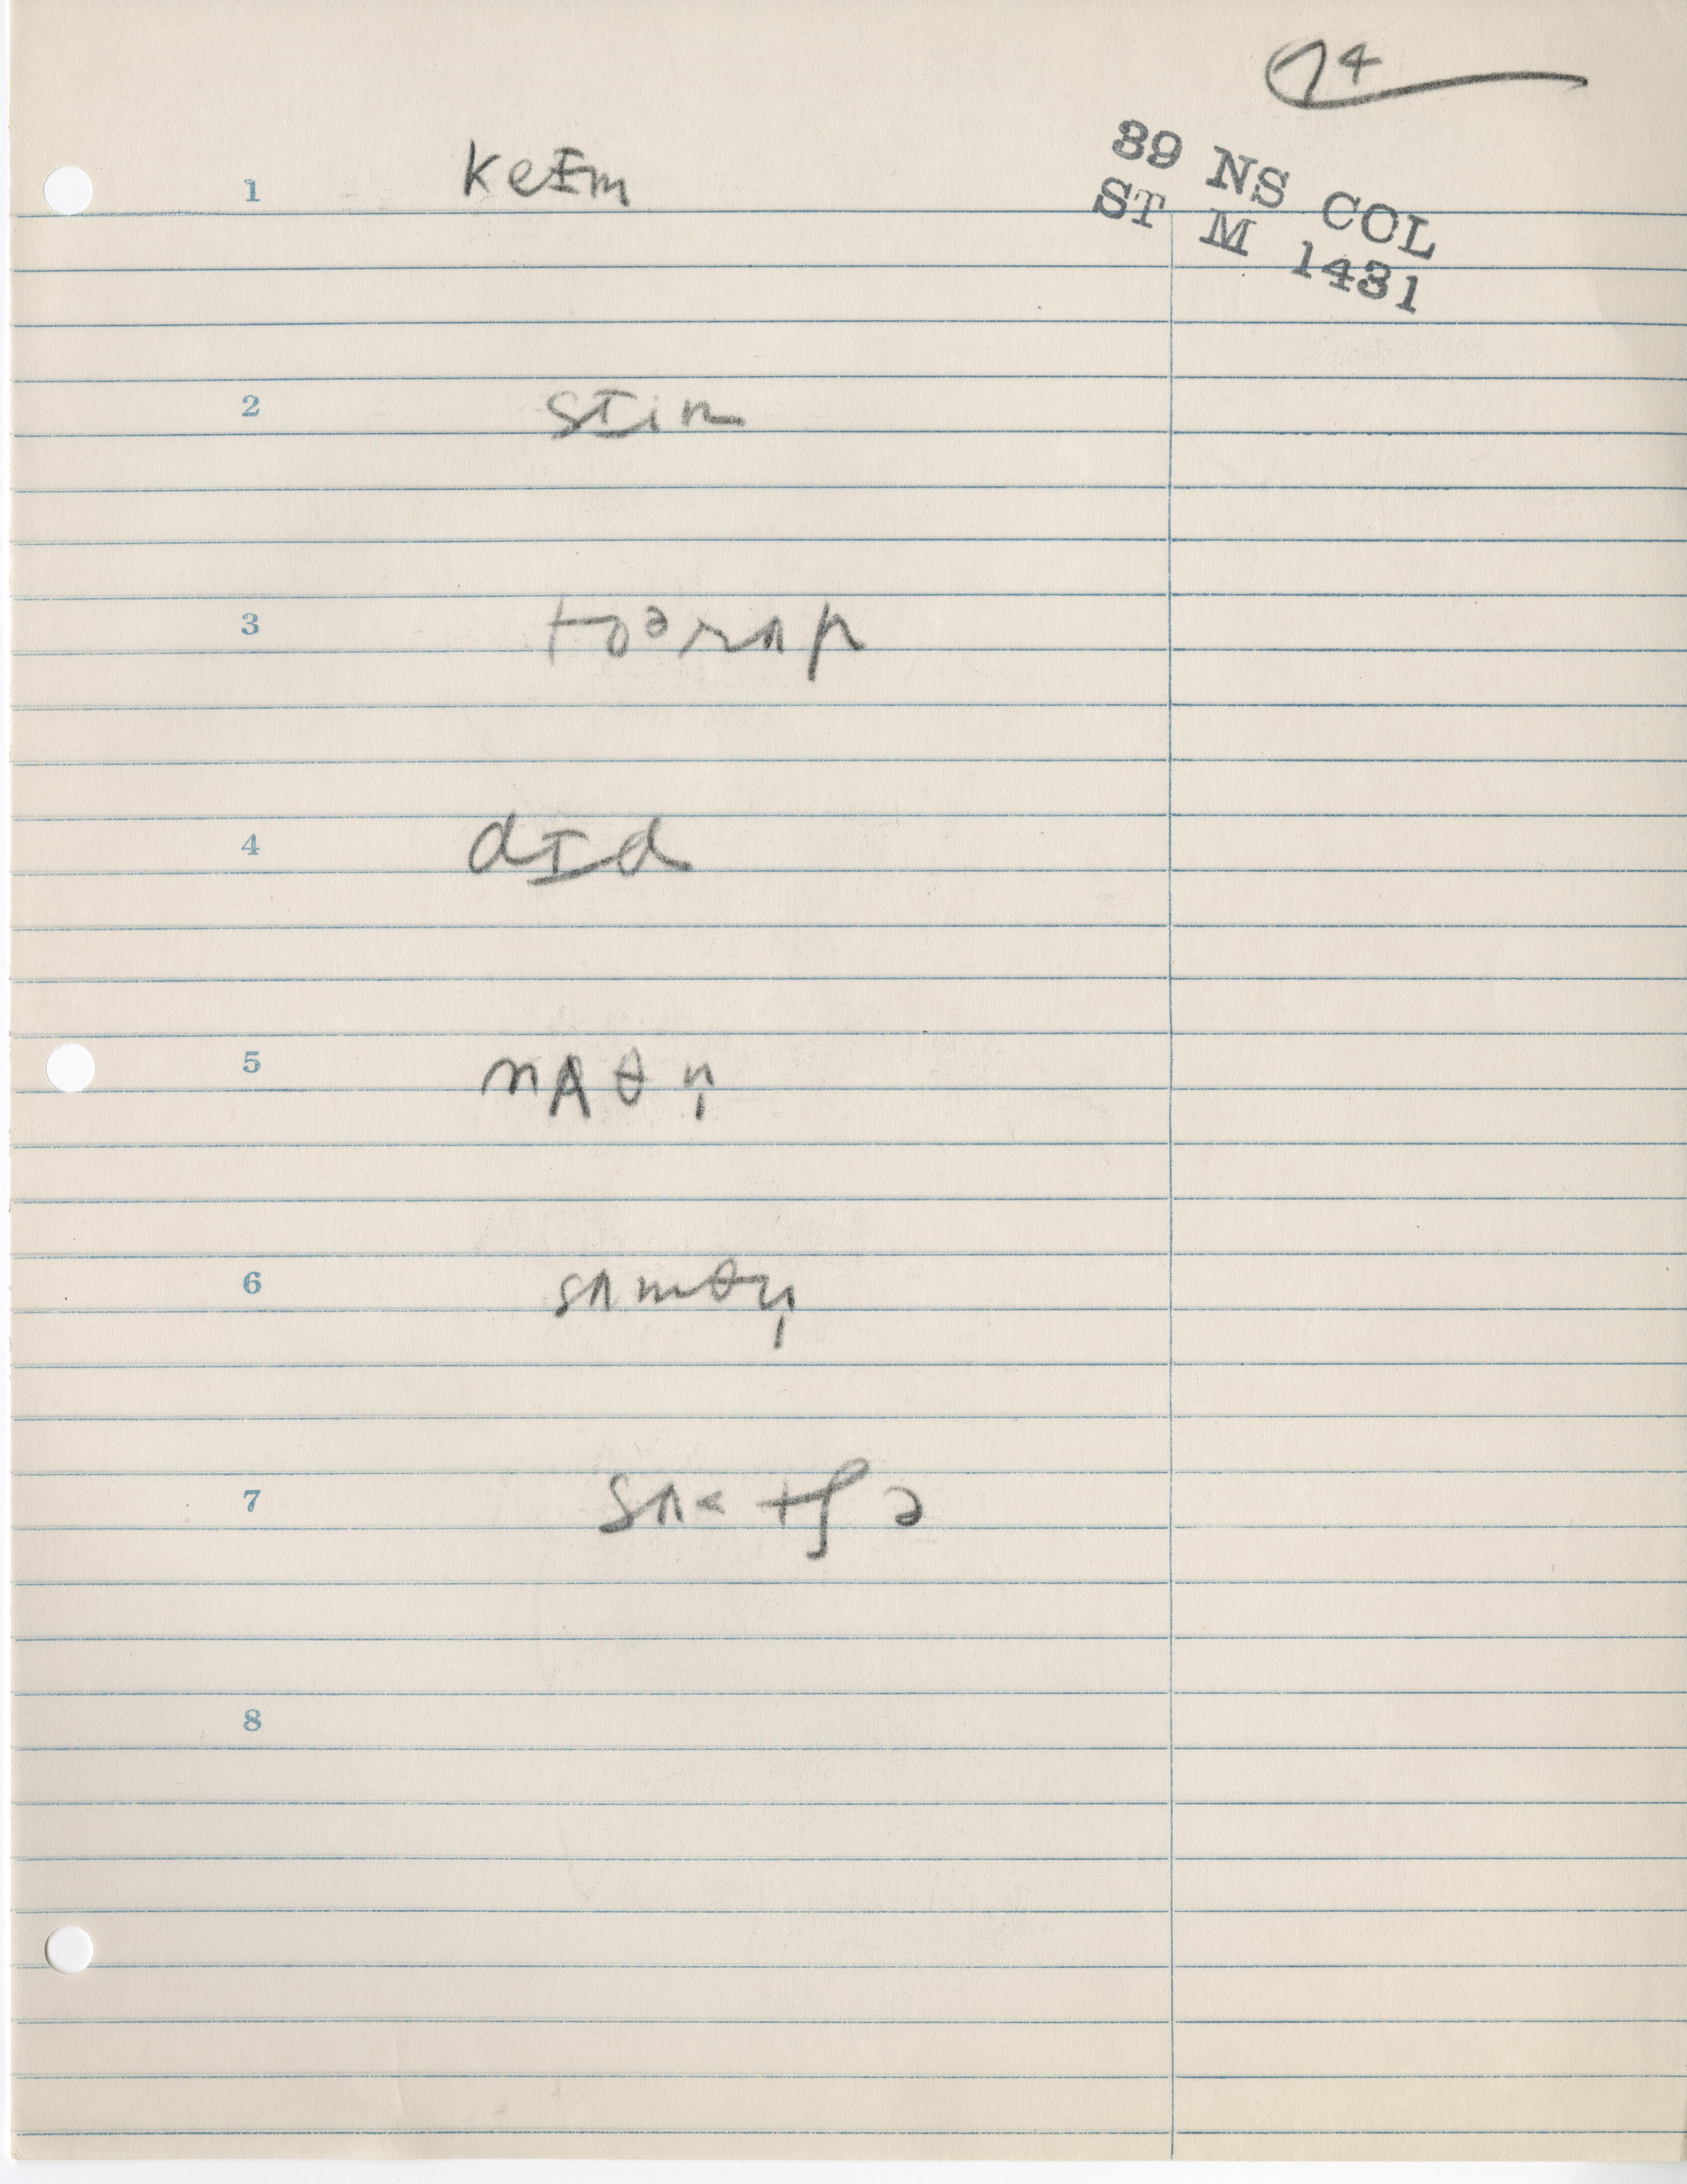 74
39 NS COL
ST M 1431
1 keɪm
2 sɪin
3 toᵊrʌp
4 dɪd
5 nʌθn̩
6 sʌmθn̩
7 sʌ< tʃə
8